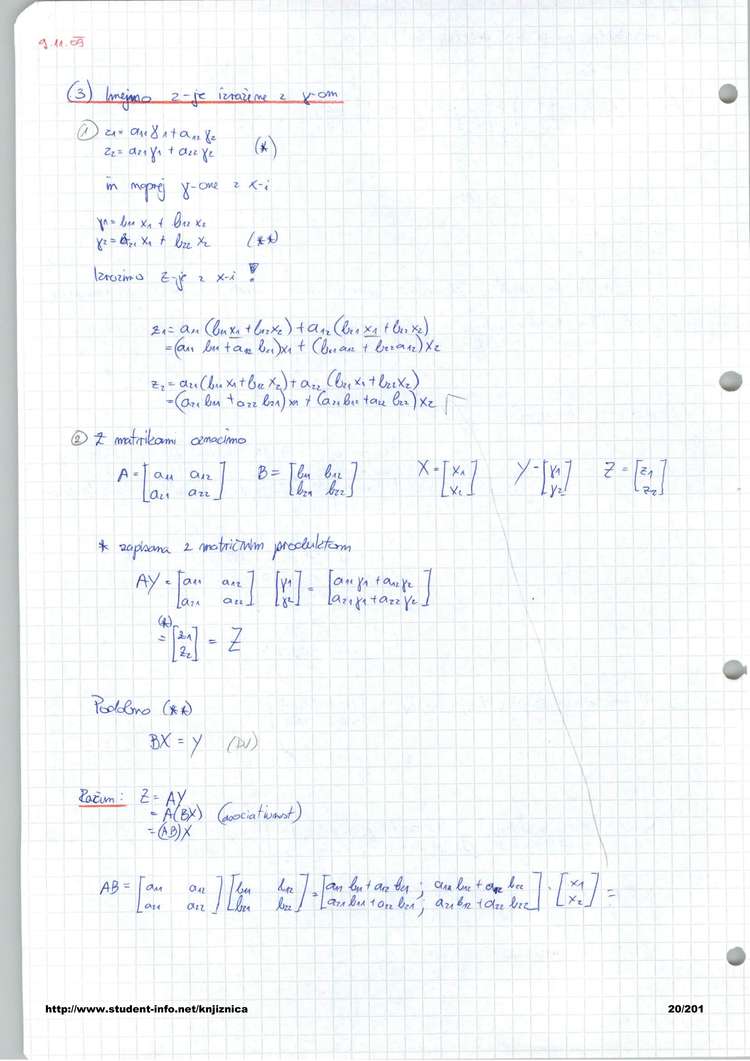 9.11.09
(3) Imejmo z-je izražene z y-om
① z₁ = a₁₁ y₁ + a₁₂ y₂
z₂ = a₂₁ y₁ + a₂₂ y₂ (*)
in naprej y-one z x-i
y₁ = b₁₁ x₁ + b₁₂ x₂
y₂ = b₂₁ x₁ + b₂₂ x₂ (**)
Izrazimo z-je z x-i !
z₁ = a₁₁ (b₁₁ x₁ + b₁₂ x₂) + a₁₂ (b₂₁ x₁ + b₂₂ x₂)
= (a₁₁ b₁₁ + a₁₂ b₂₁) x₁ + (b₁₂ a₁₁ + b₂₂ a₁₂) x₂
z₂ = a₂₁ (b₁₁ x₁ + b₁₂ x₂) + a₂₂ (b₂₁ x₁ + b₂₂ x₂)
= (a₂₁ b₁₁ + a₂₂ b₂₁) x₁ + (a₂₁ b₁₂ + a₂₂ b₂₂) x₂
② Z matrikami označimo
A = [a₁₁ a₁₂ B = [b₁₁ b₁₂] X = [x₁ Y = [y₁ Z = [z₁
a₂₁ a₂₂] b₂₁ b₂₂] x₂] y₂] z₂]
* zapisana z matričnim produktom
AY = [a₁₁ a₁₂ [y₁ = [a₁₁ y₁ + a₁₂ y₂
a₂₁ a₂₂] y₂] a₂₁ y₁ + a₂₂ y₂]
(*)
= [z₁ = Z
z₂]
Podobno (**)
BX = Y (DN)
Račun: Z = AY
= A(BX) (asociativnost)
= (AB)X
AB = [a₁₁ a₁₂ [b₁₁ b₁₂ = [a₁₁ b₁₁ + a₁₂ b₂₁ ; a₁₁ b₁₂ + a₁₂ b₂₂ · [x₁ =
a₂₁ a₂₂] b₂₁ b₂₂] a₂₁ b₁₁ + a₂₂ b₂₁ ; a₂₁ b₁₂ + a₂₂ b₂₂] x₂]
http://www.student-info.net/knjiznica 20/201